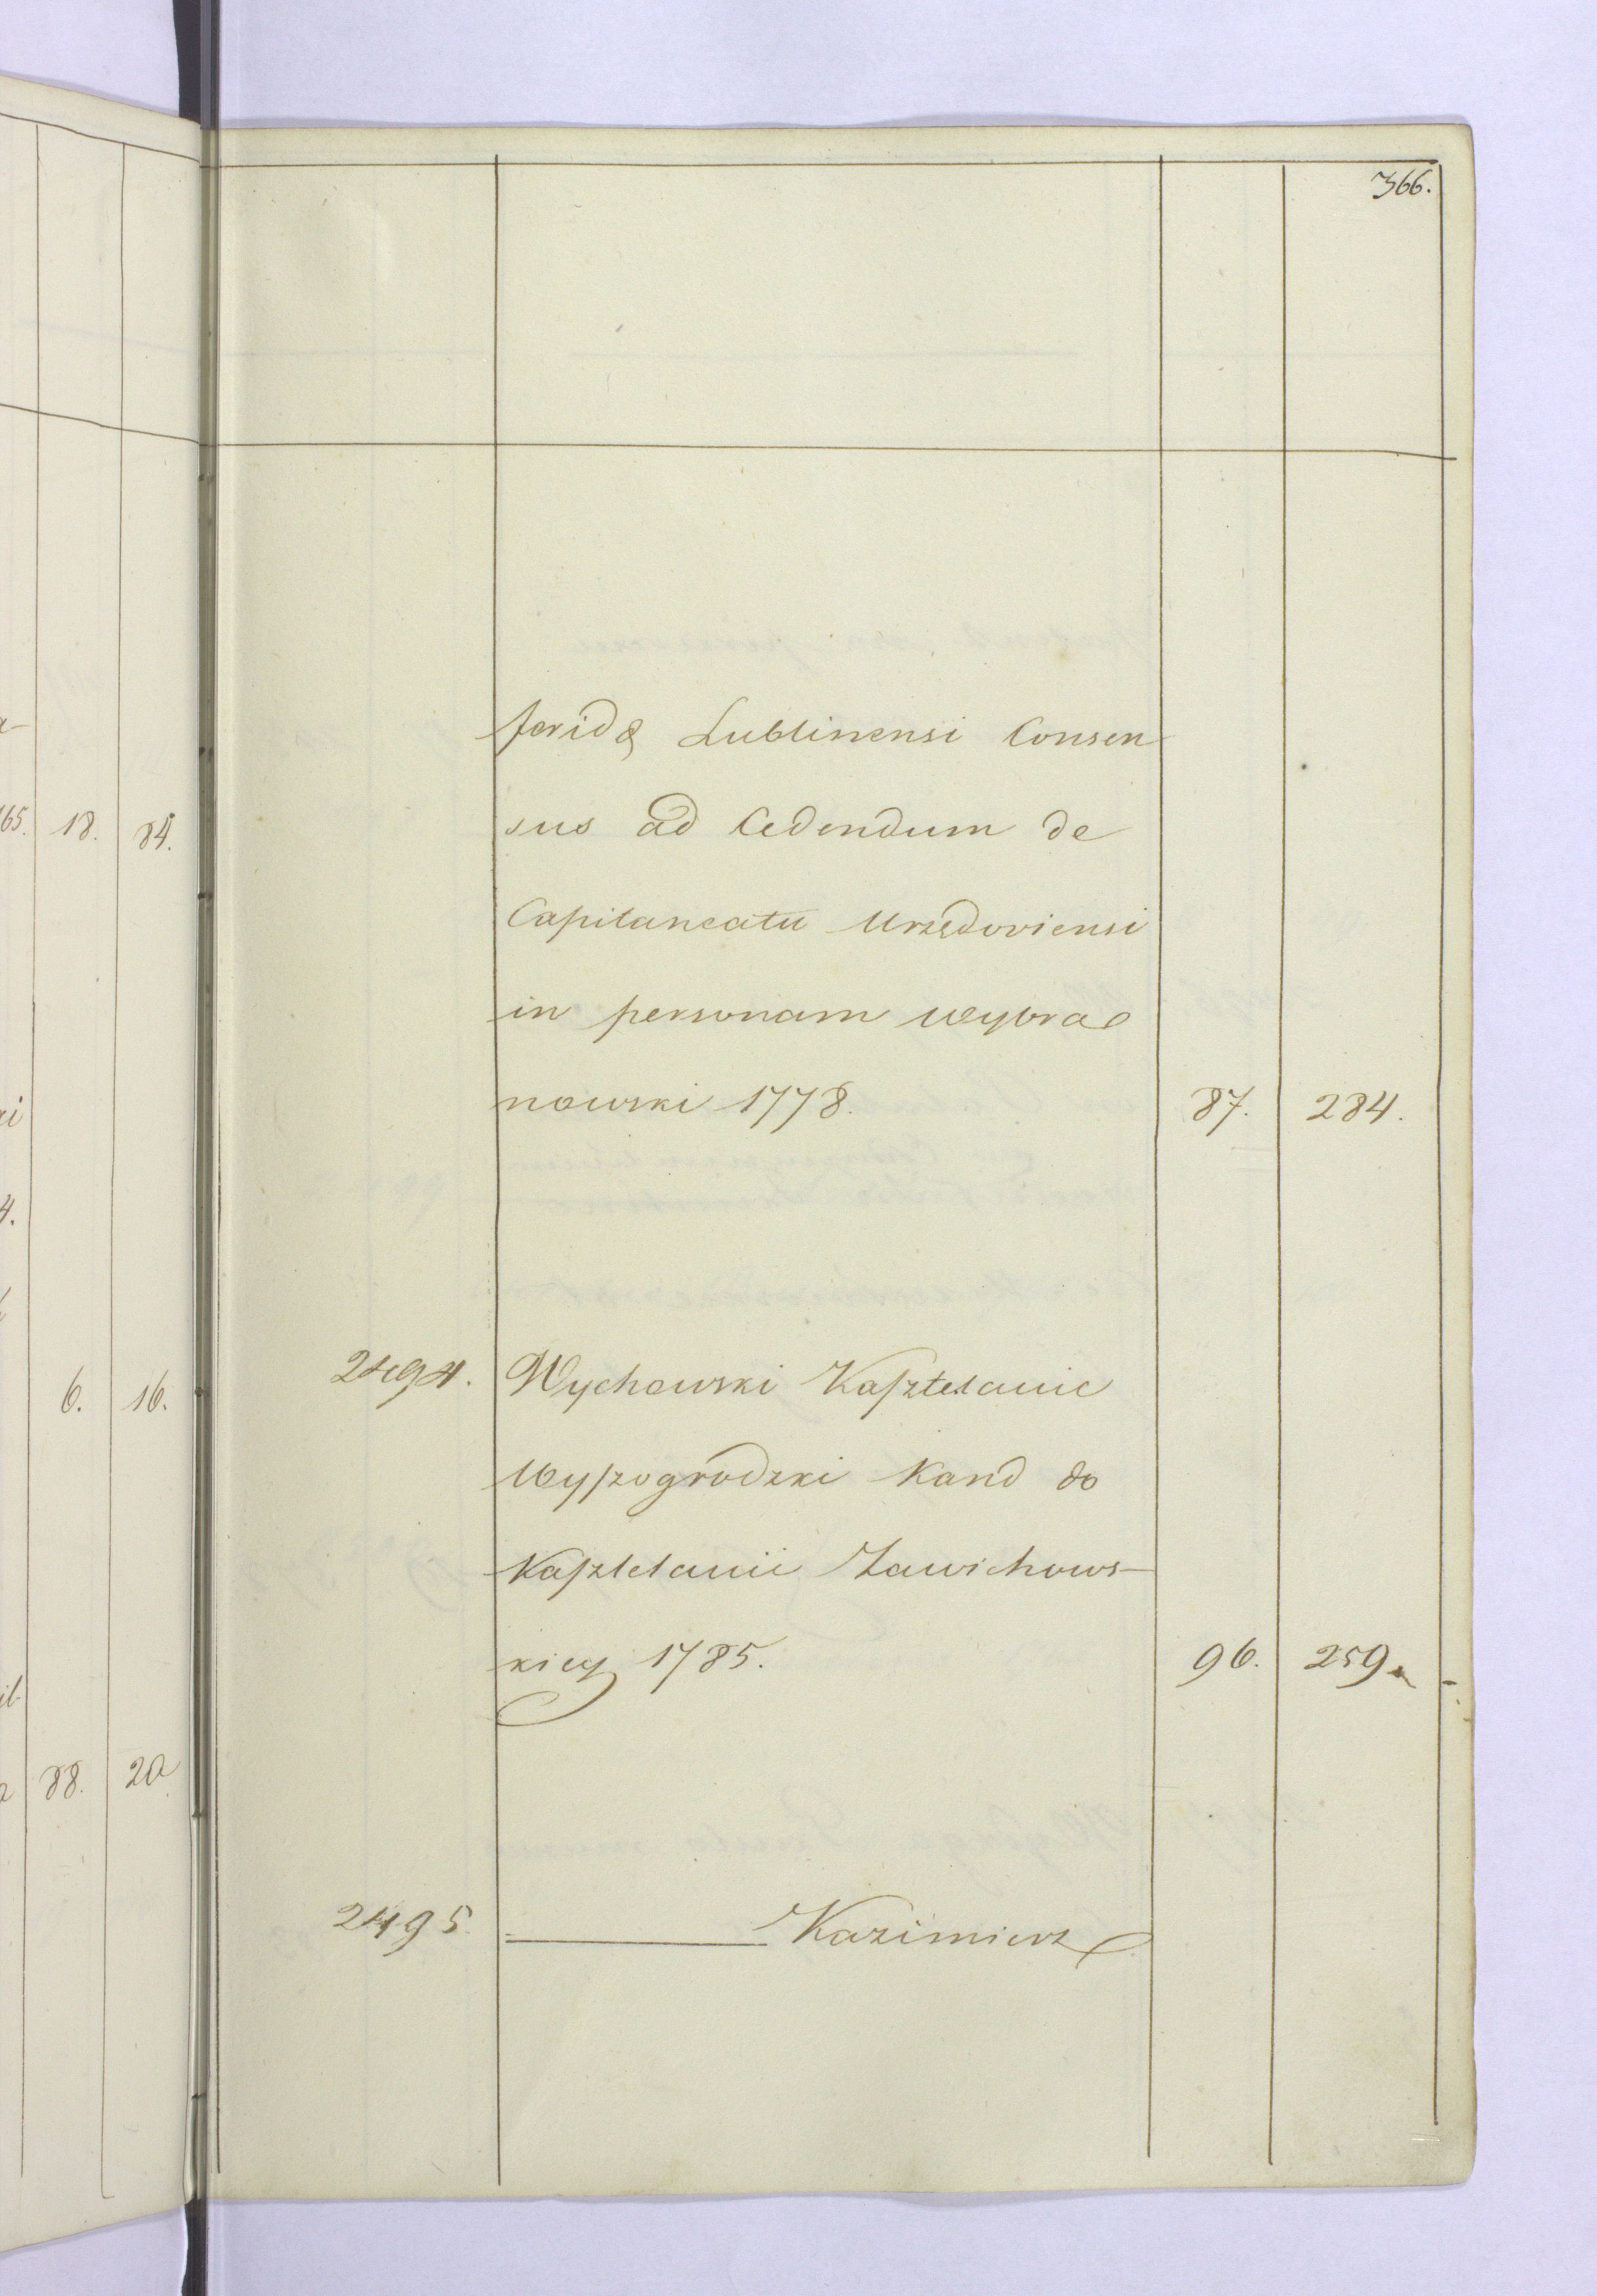 366.
ferid& Lublinensi Consen
sus ad Cedendum de
Capitaneatu Urzędoviensi
in personam Wybra
nowski 1778. 87. 284.
2494. Wychowski Kasztelanic
Wyszogrodzki Kand do
Kasztelanii Zawichows-
kiey 1785. 96. 259.
2495. Kazimierz
65. 18. 84.
6. 16.
88. 20